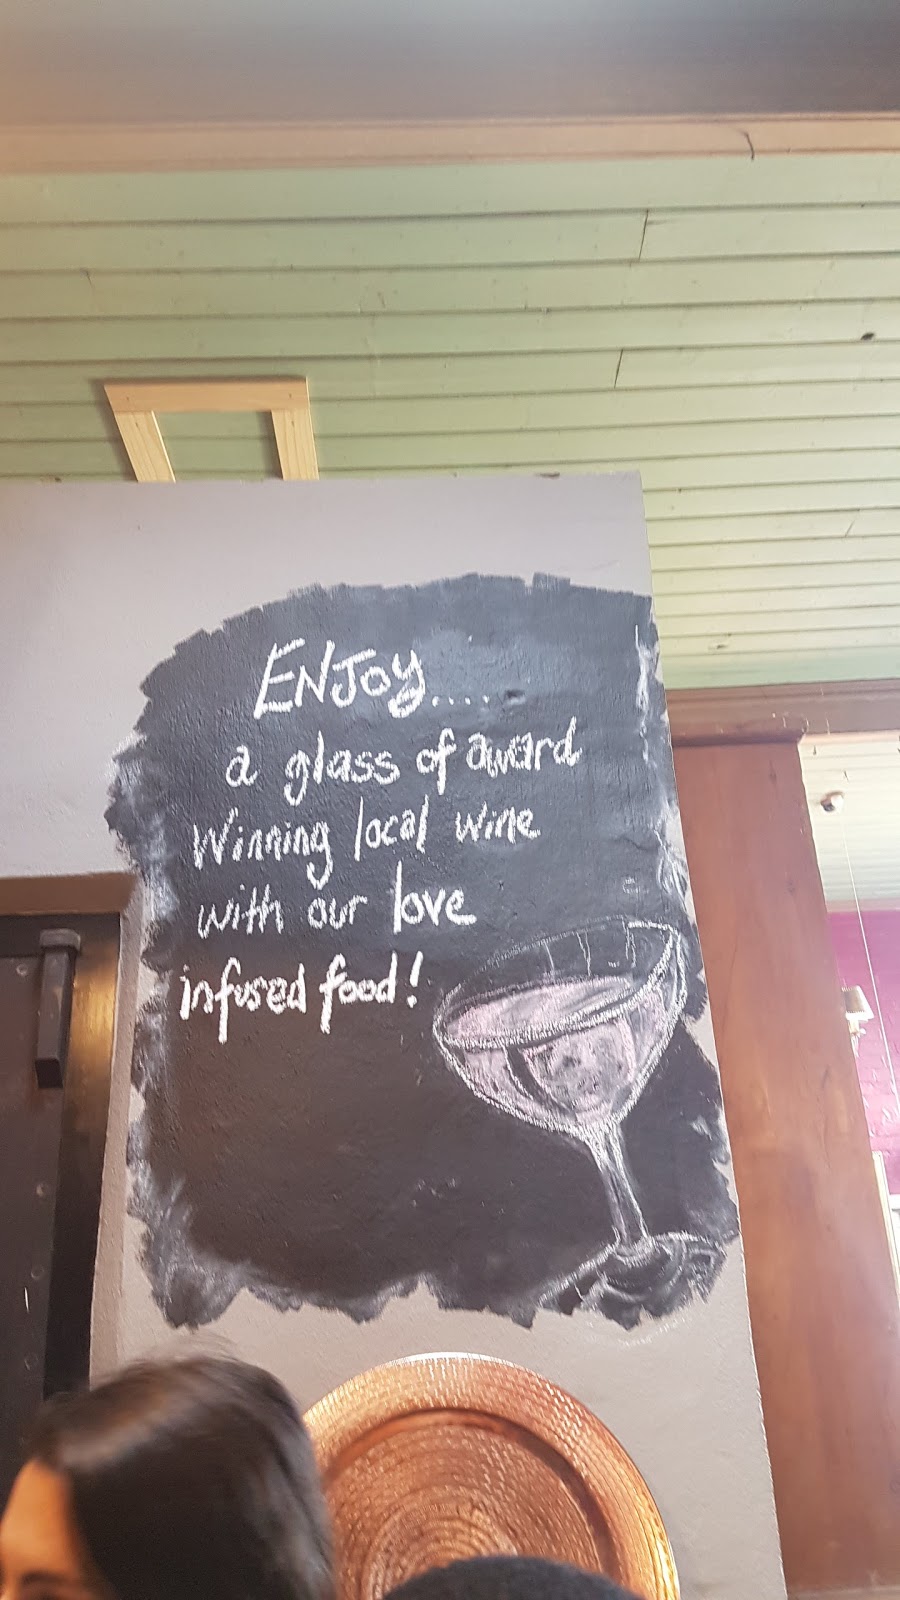 ENJoy....
a glass of award
Winning local wine
with our love
infused food!